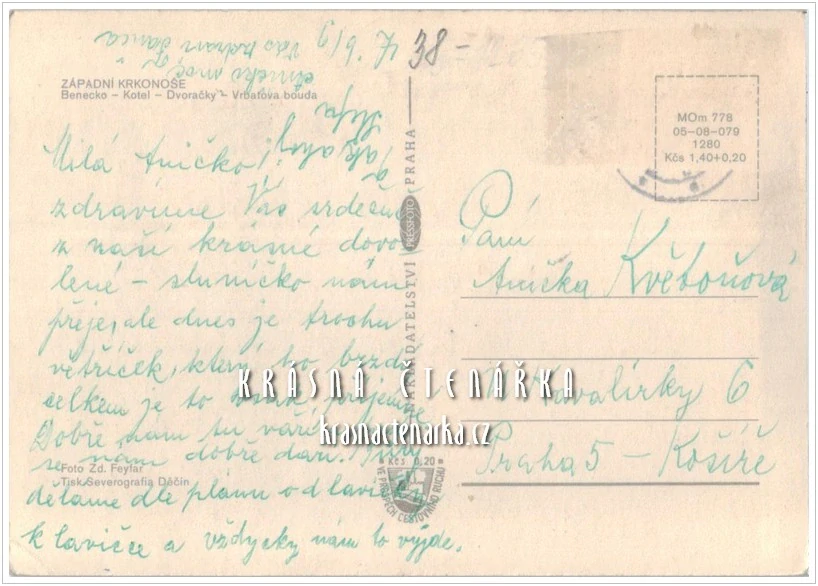 38
ZÁPADNÍ KRKONOŠE
Benecko – Kotel – Dvoračky – Vrbatova bouda
Milá Aničko!
zdravíme Vás srdečně
z naší krásné dovo
lené – sluníčko nám
přeje, ale dnes je trochu
větříček, který ho brzdí
celkem je to však příjemné
Dobře nám tu vaří
se nám dobře daří.
děláme dle plánu od lavičky
k lavičce a vždycky nám to vyjde.
Foto Zd. Feyfar
Tisk Severografia Děčín
NAKLADATELSTVÍ PRESSFOTO PRAHA
Kčs 0,20
VE PROSPĚCH CESTOVNÍHO RUCHU
MOm 778
05-08-079
1280
Kčs 1,40+0,20
Paní
Anička Květoňová
Kavalírky 6
Praha 5 – Košíře
KRÁSNÁ ČTENÁŘKA
krasnactenarka.cz